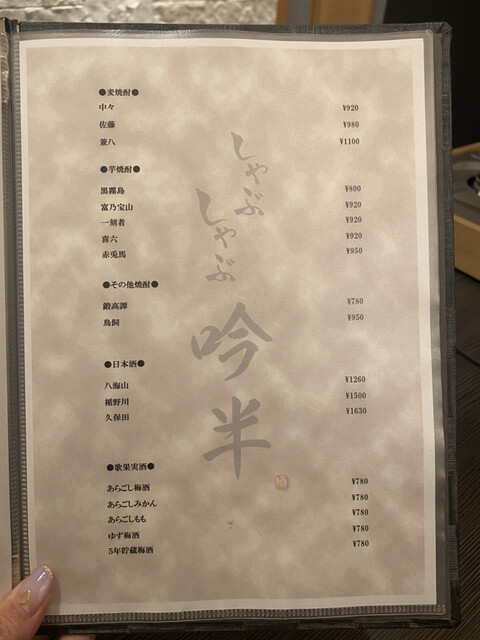 ●麦焼酎●
中々 ¥920
佐藤 ¥980
兼八 ¥1100
●芋焼酎●
黒霧島 ¥800
富乃宝山 ¥920
一刻者 ¥920
喜六 ¥920
赤兎馬 ¥950
●その他焼酎●
鍛高譚 ¥780
鳥飼 ¥950
●日本酒●
八海山 ¥1260
楯野川 ¥1500
久保田 ¥1630
●歌果実酒●
あらごし梅酒 ¥780
あらごしみかん ¥780
あらごしもも ¥780
ゆず梅酒 ¥780
5年貯蔵梅酒 ¥780
しゃぶ
しゃぶ
吟半